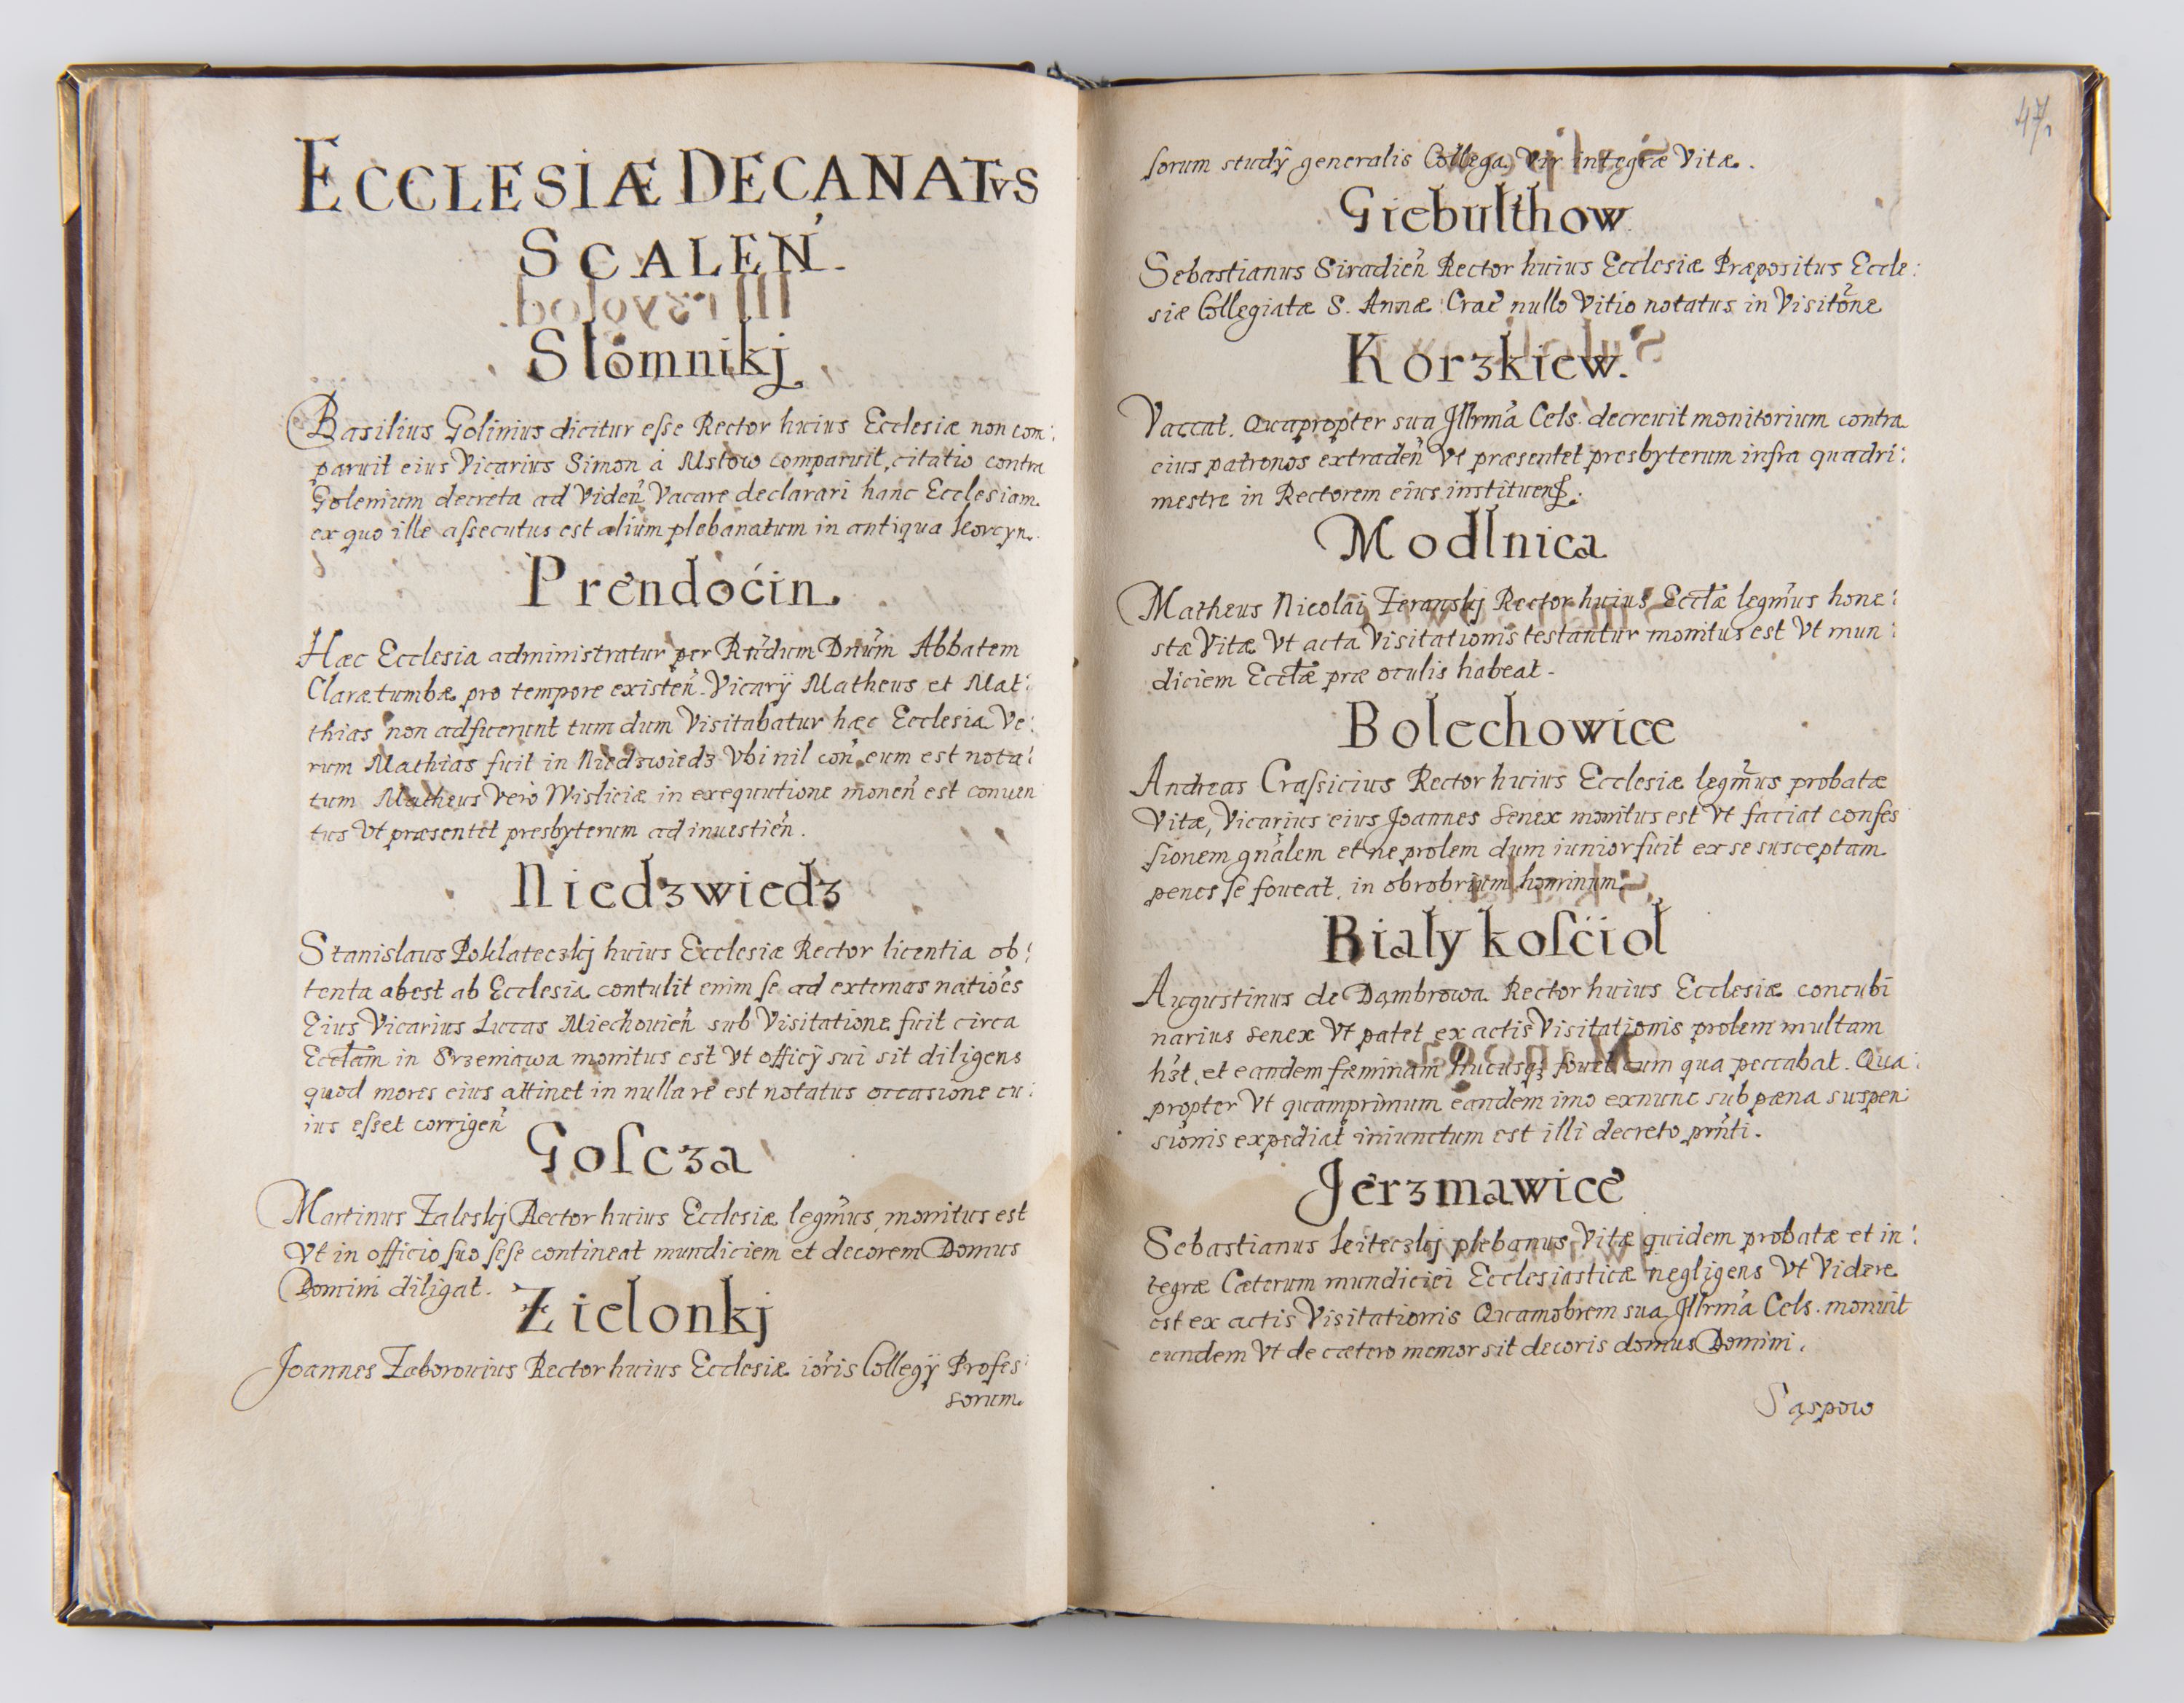 ECCLESIÆ DECANATVS
SCALEŃ.
Słomnikj
Basilius Golinius dicitur esse Rector huius Ecclesiæ non com:
paruit eius Vicarius Simon à Mstow comparuit, citatio contra
Golenium decreta ad Videń Vacare declarari hanc Ecclesiam
ex quo ille assecutus est alium plebanatum in antiqua Korcyn.
Prendoćin.
Hæc Ecclesia administratur per Rńdum Dńum Abbatem
Claræ tumbæ pro tempore existeń. Vicarÿ Matheus et Mat:
thias non adfuerunt tum dum Visitabatur hæc Ecclesia Ve:
rum Mathias fuit in Niedzwiedz Vbi nil coń eum est nota:
tum Matheus Verò Wisliciæ in exequutione moneń est conuen
tus Vt præsentet presbyterum ad inuestień.
Niedzwiedz
Stanislaus Poklateczkj huius Ecclesiæ Rector licentia ob:
tenta abest ab Ecclesia contulit enim se ad externas natioes
Eius Vicarius Lucas Miechouień sub Visitatione fuit circa
Ecclam in Srzeniawa monitus est Vt officÿ sui sit diligens
quod mores eius attinet in nulla re est notatus occasione cu:
ius esset corrigeń
Goscza
Martinus Zaleskj Rector huius Ecclesiæ legm̃us, monitus est
Vt in officio suo sese contineat mundiciem et decorem Domus
Domini diligat.
Zielonkj
Joannes Zaborouius Rector huius Ecclesiæ ioris Collegÿ Profes:
sorum
47.
sorum studÿ generalis Collega, Vir integræ Vitæ.
Giebulthow
Sebastianus Siradień Rector huius Ecclesiæ Præpositus Eccle:
siæ Collegiatæ S. Annæ Crac̃ nullo Vitio notatus in Visitõne
Korzkiew.
Vaccat. Quapropter sua Jllrm̃a Cels. decreuit monitorium contra
eius patronos extradeń Vt præsentet presbyterum infra quadri:
mestre in Rectorem eius
Modlnica
Matheus Nicolai Zeranskj Rector huius Ecclæ legm̃us hone:
stæ Vitæ Vt acta Visitationis testantur monitus est Vt mun:
diciem Ecclæ præ oculis habeat.
Bolechowice
Andreas Crassicius Rector huius Ecclesiæ legm̃us probatæ
Vitæ, Vicarius eius Joannes Senex monitus est Vt faciat confes
sionem gńalem et ne prolem dum iunior fuit ex se susceptam
penes se foueat in obrobrium hominum.
Biały kosćioł
Augustinus de Dąmbrowa Rector huius Ecclesiæ concubi
narius senex Vt patet ex actis Visitationis prolem multam
h̃et, et eandem fæminam hucusq; fouet cum qua peccabat. Qua:
propter Vt quamprimum eandem imo exnunc sub pæna suspen
sionis expediat iniunctum est illi decreto prńti.
Jerzmawice
Sebastianus Leiteczkj plebanus Vitæ quidem probatæ et in:
tegræ Cæterum mundiciei Ecclesiasticæ negligens Vt Videre
est ex actis Visitationis Quamobrem sua Jllrm̃a Cels. monuit
eundem Vt de cætero memor sit decoris domus Domini.
Sąspow